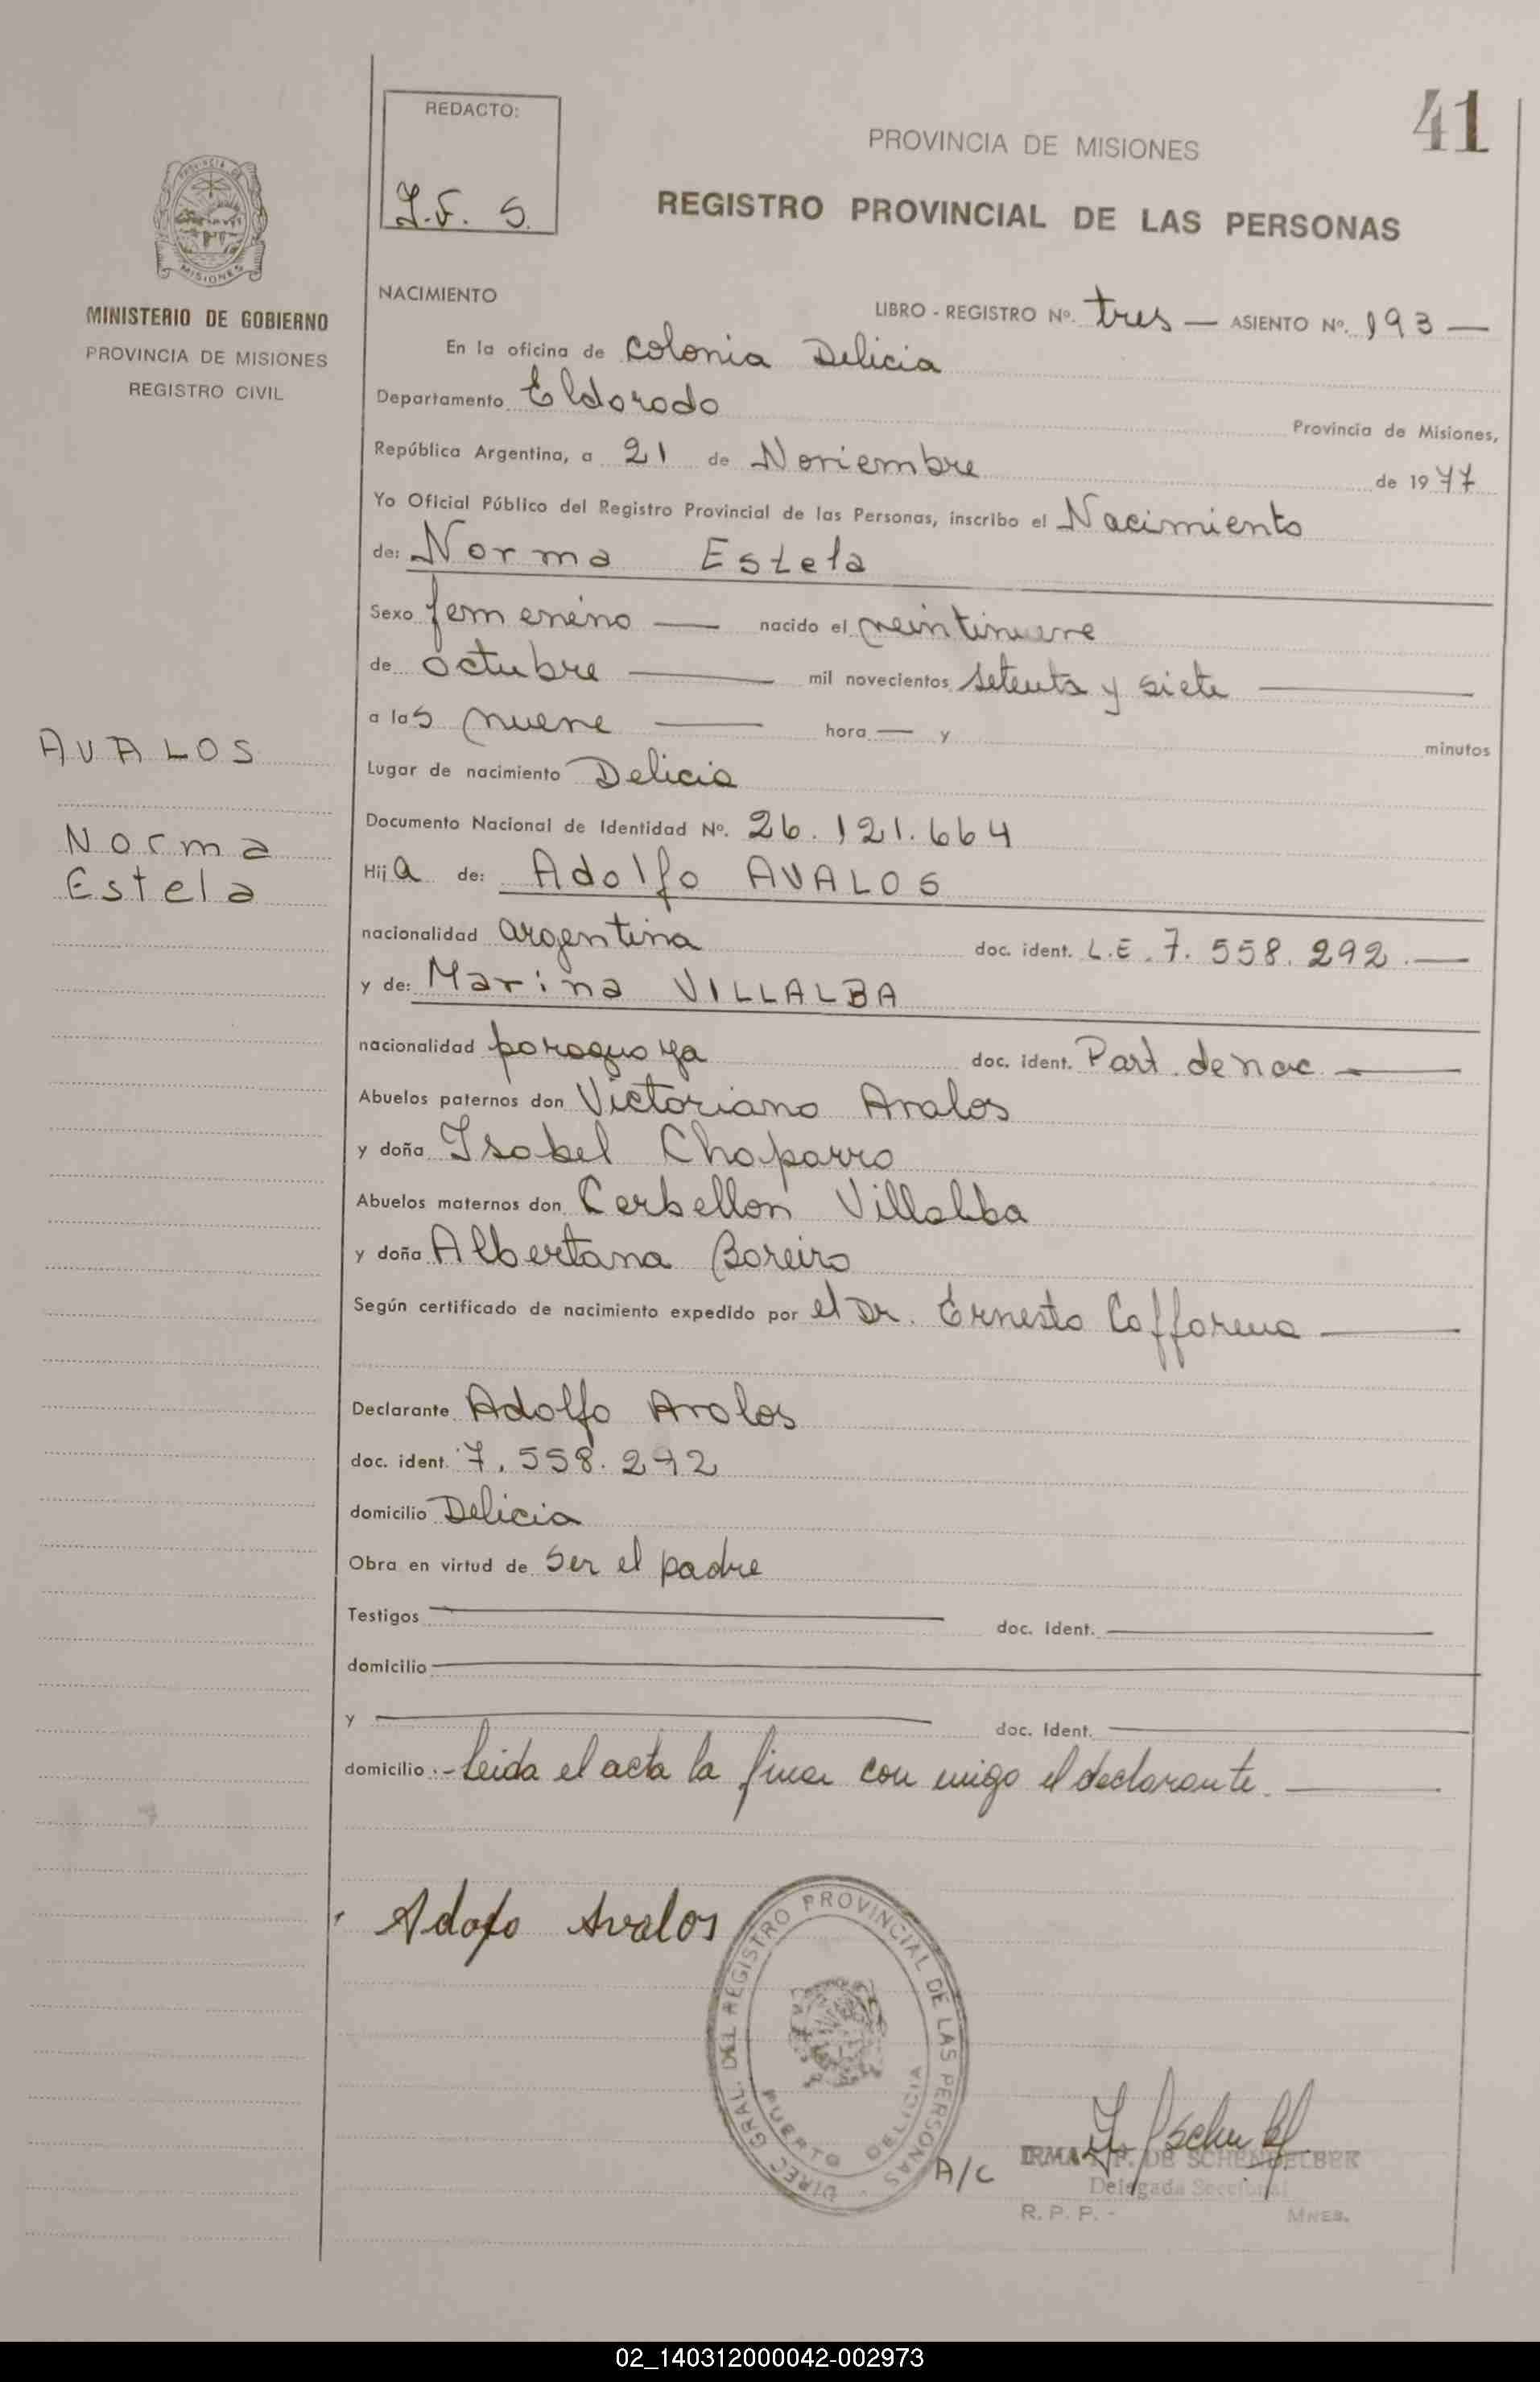 41
REDACTO:
PROVINCIA DE MISIONES
REGISTRO PROVINCIAL DE LAS PERSONAS
PROVINCIA DE
MISIONES
MINISTERIO DE GOBIERNO
PROVINCIA DE MISIONES
REGISTRO CIVIL
NACIMIENTO
LIBRO - REGISTRO Nº. tres — ASIENTO Nº. 193 —
En la oficina de Colonia Delicia
Departamento Eldorado Provincia de Misiones,
República Argentina, a 21 de Noviembre de 1977
Yo Oficial Público del Registro Provincial de las Personas, inscribo el Nacimiento
de: Norma Estela
Sexo femenino — nacido el veintinueve
de octubre — mil novecientos setenta y siete —
a las nueve — hora — y minutos
AVALOS
Norma
Estela
Lugar de nacimiento Delicia
Documento Nacional de Identidad Nº. 26.121.664
Hija de: Adolfo AVALOS
nacionalidad argentina doc. ident. L.E. 7.558.292.—
y de: Marina VILLALBA
nacionalidad paraguaya doc. ident. Part. de nac. —
Abuelos paternos don Victoriano Avalos
y doña Isabel Chaparro
Abuelos maternos don Cerbellon Villalba
y doña Albertana Boreiro
Según certificado de nacimiento expedido por el Dr. Ernesto Caffarena —
Declarante Adolfo Avalos
doc. ident. 7.558.292
domicilio Delicia
Obra en virtud de Ser el padre
Testigos — doc. Ident. —
domicilio —
y — doc. Ident. —
domicilio.- leida el acta la firma con migo el declarante. —
Adolfo Avalos
DIREC GRAL. DEL REGISTRO PROVINCIAL DE LAS PERSONAS
PUERTO DELICIA
A/C
IRMA F. DE SCHENDELBEK
Delegada Seccional
R. P. P. - MNES.
02_140312000042-002973